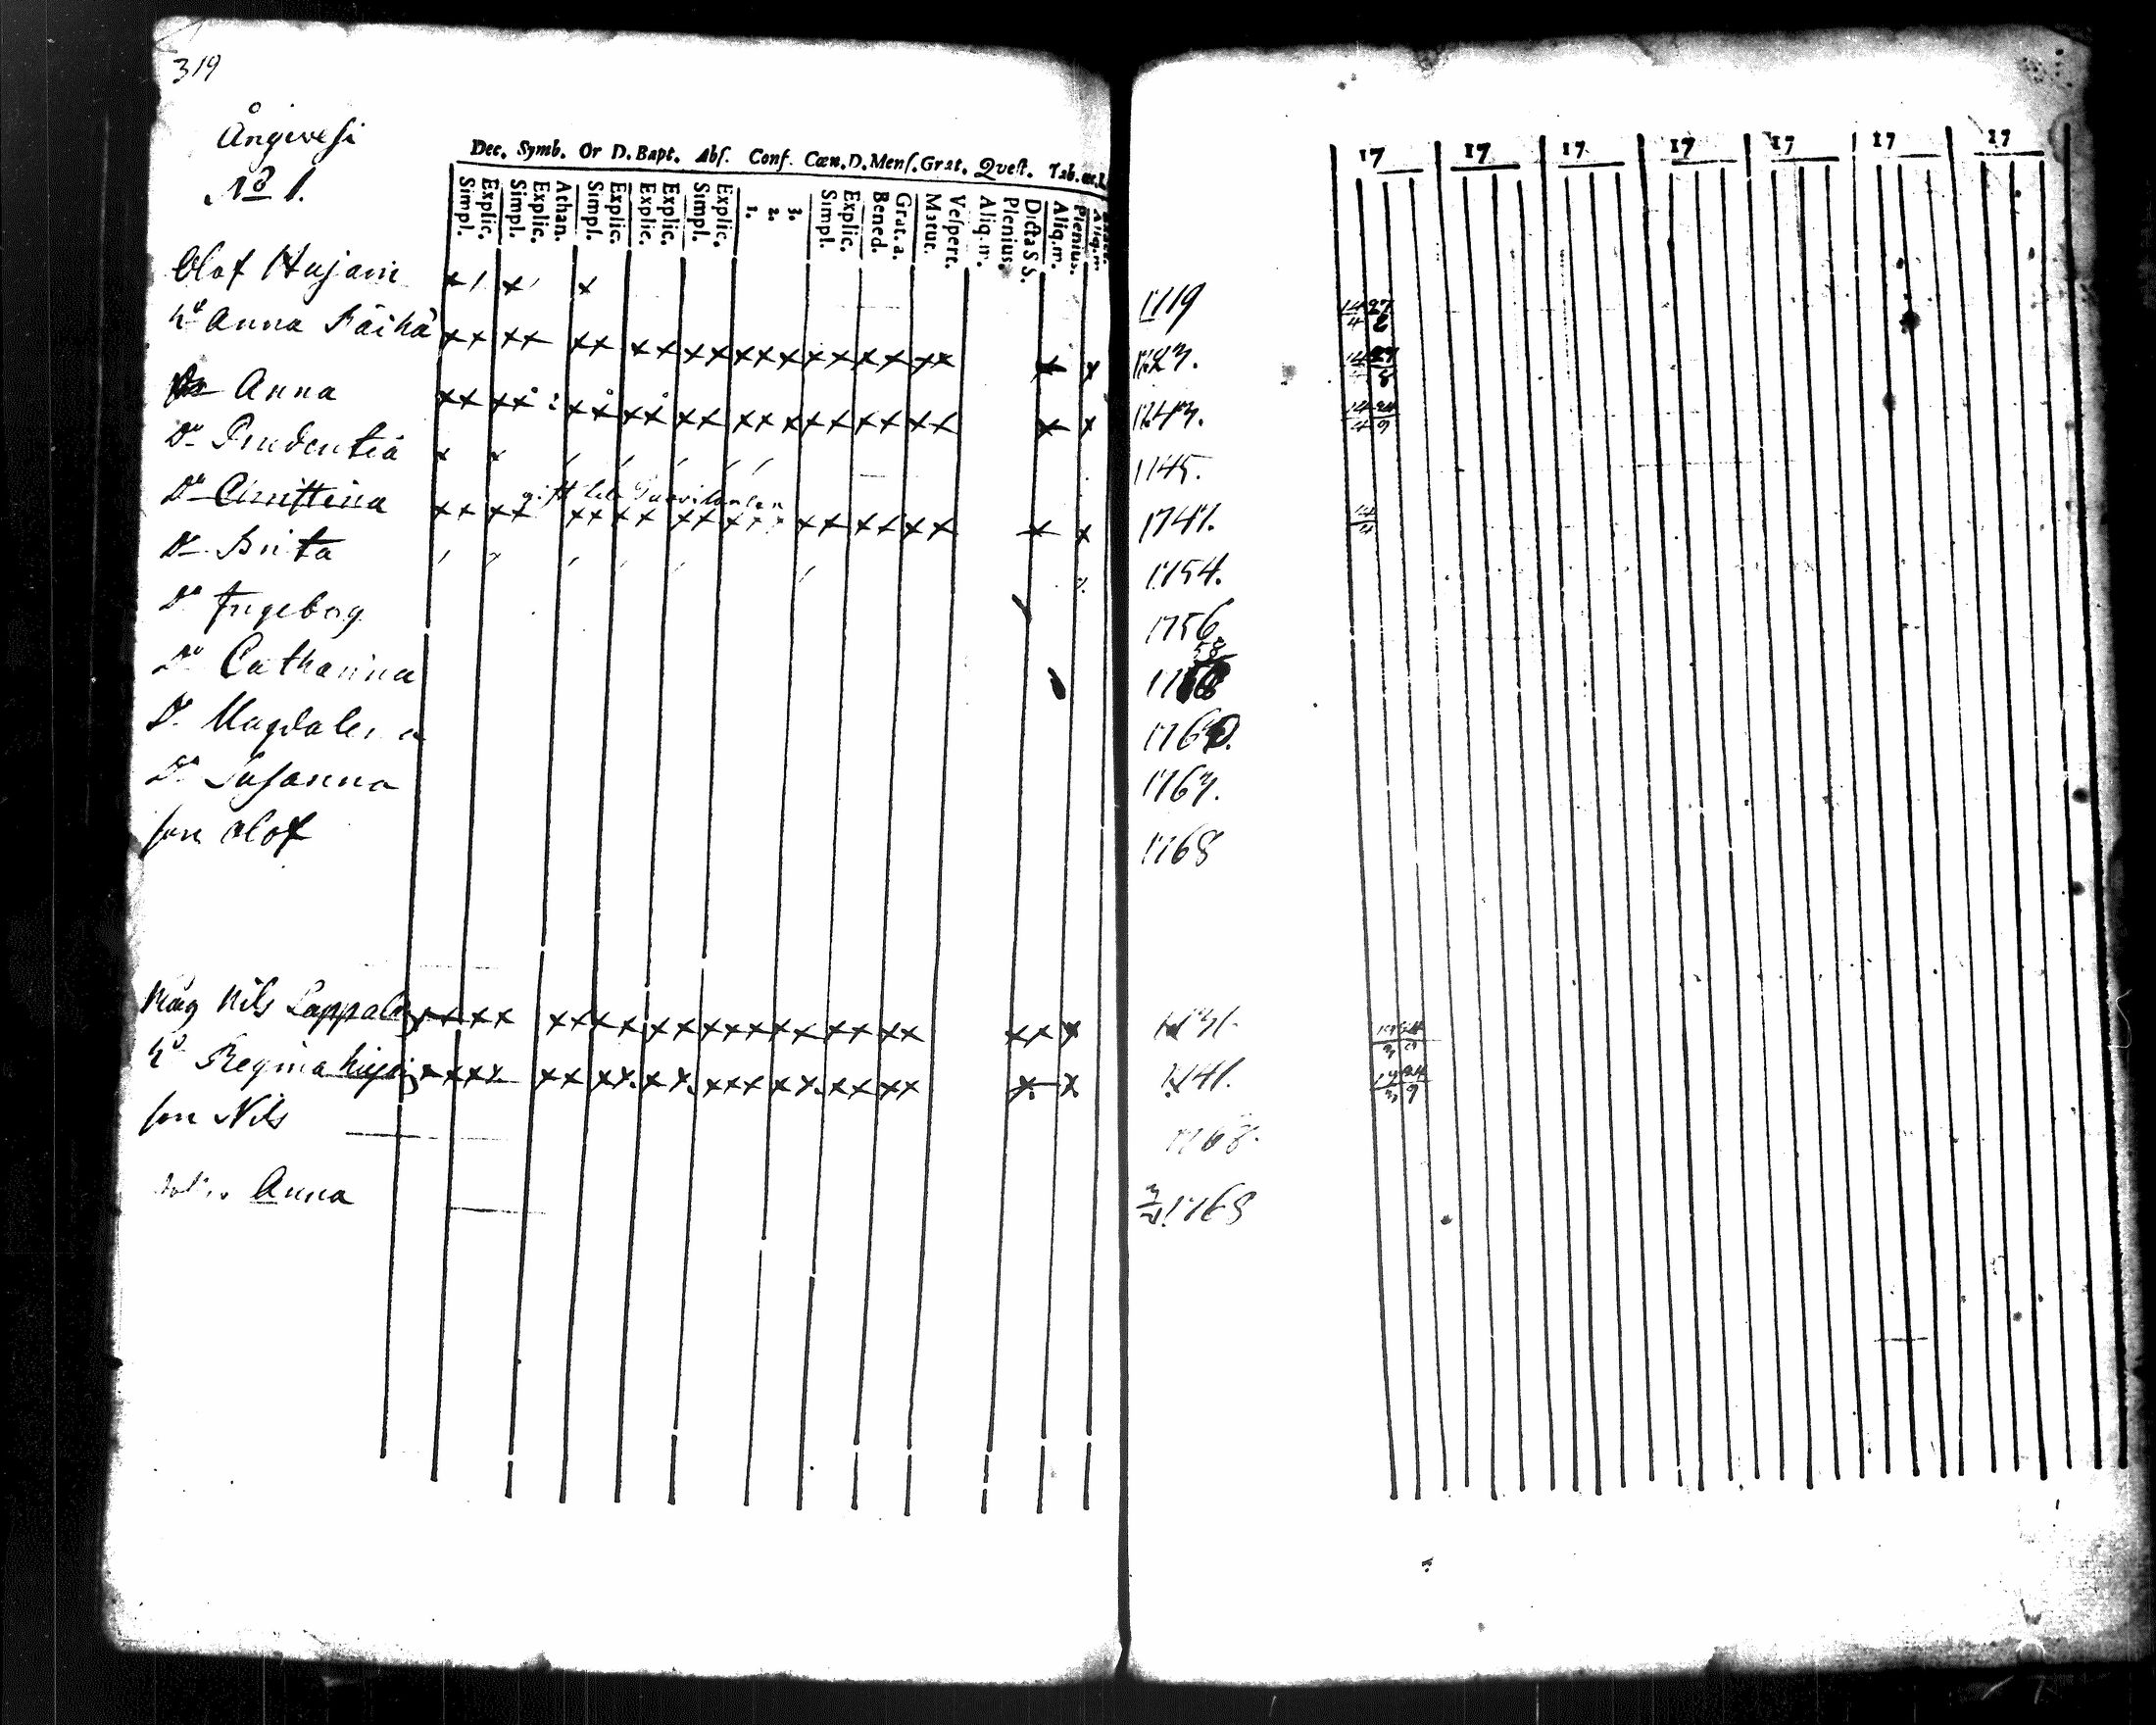 319
Ångivesi
No 1.
Dec. Symb. Or D. Bapt. Abſ. Conf. Cœn. D. Menſ. Grat. Qveſt. Tab.
Simpl. Explic. Simpl. Explic. Athan. Simpl. Explic. Explic. Explic. Simpl. Explic. 1. 2. 3. Simpl. Explic. Bened. Grat. a. Matut. Veſpert. Aliq. m. Plenius. Dicta S S. Aliq. m. Plenius. Aliq. m
17 17 17 17 17 17 17
Olof Hujani 1719
hu Anna Räihä 1723.
Anna 1743.
Dr Prudentia 1745.
Dr Christina gift 1747.
Dr Brita 1754.
Dr Ingeborg 1756
Dr Catharina 58
Dr Magdalena 1760.
Dr Susanna 1763.
son Olof 1768
Måg Nils Lappala 1731.
hu Regina 1741.
son Nils 1768.
Anna 1768